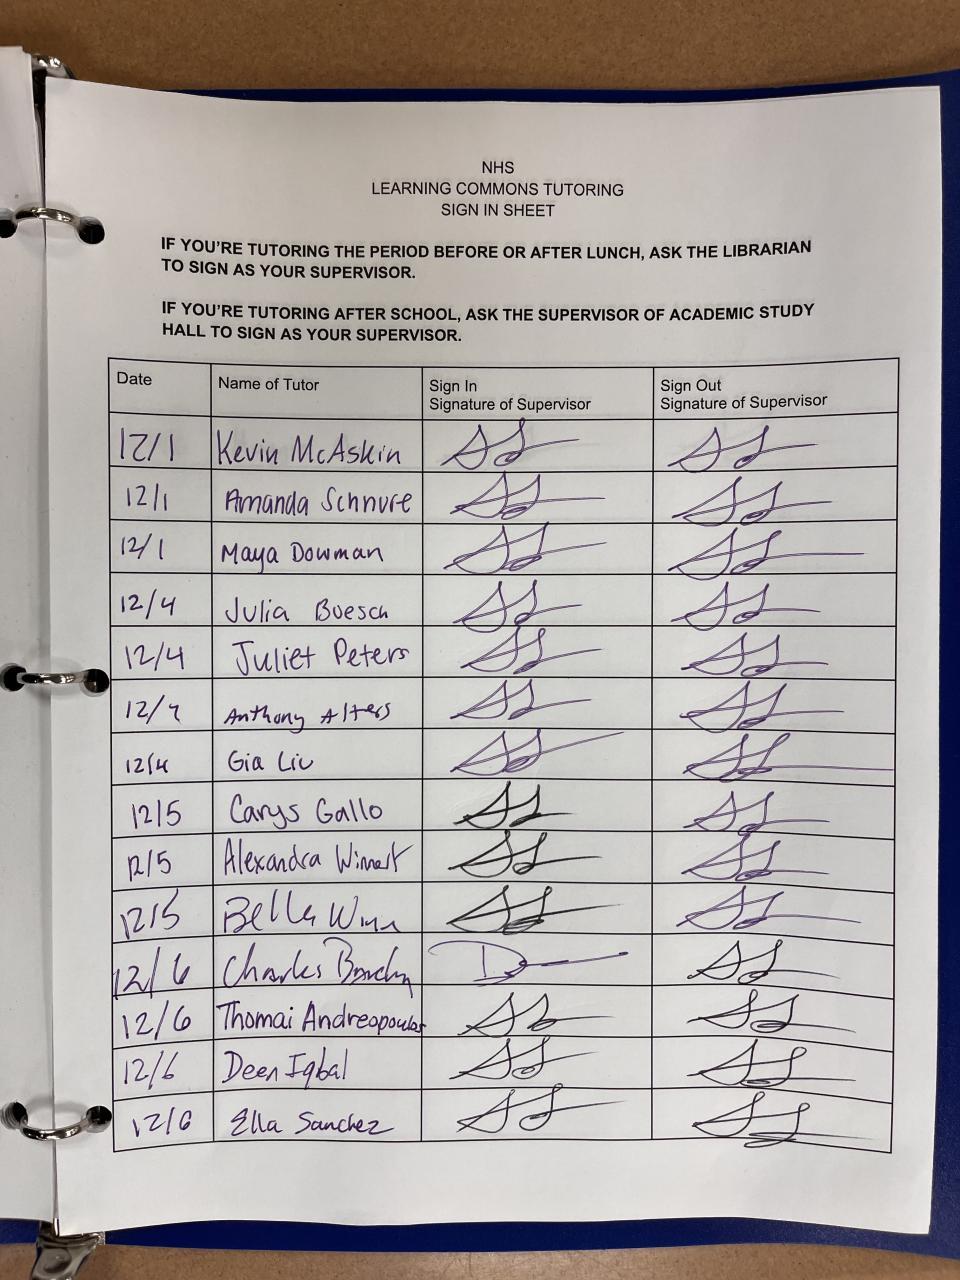 NHS
LEARNING COMMONS TUTORING
SIGN IN SHEET
IF YOU'RE TUTORING THE PERIOD BEFORE OR AFTER LUNCH, ASK THE LIBRARIAN
TO SIGN AS YOUR SUPERVISOR.
IF YOU'RE TUTORING AFTER SCHOOL, ASK THE SUPERVISOR OF ACADEMIC STUDY
HALL TO SIGN AS YOUR SUPERVISOR.
Date Name of Tutor Sign In Signature of Supervisor Sign Out Signature of Supervisor
12/1 Kevin McAskin
12/1 Amanda Schnure
12/1 Maya Dowman
12/4 Julia Buesch
12/4 Juliet Peters
12/4 Anthony Alters
12/4 Gia Liu
12/5 Carys Gallo
12/5 Alexandra
12/5 Bella
12/6 Charles
12/6 Thomai Andreopoulos
12/6 Deen Iqbal
12/6 Ella Sanchez